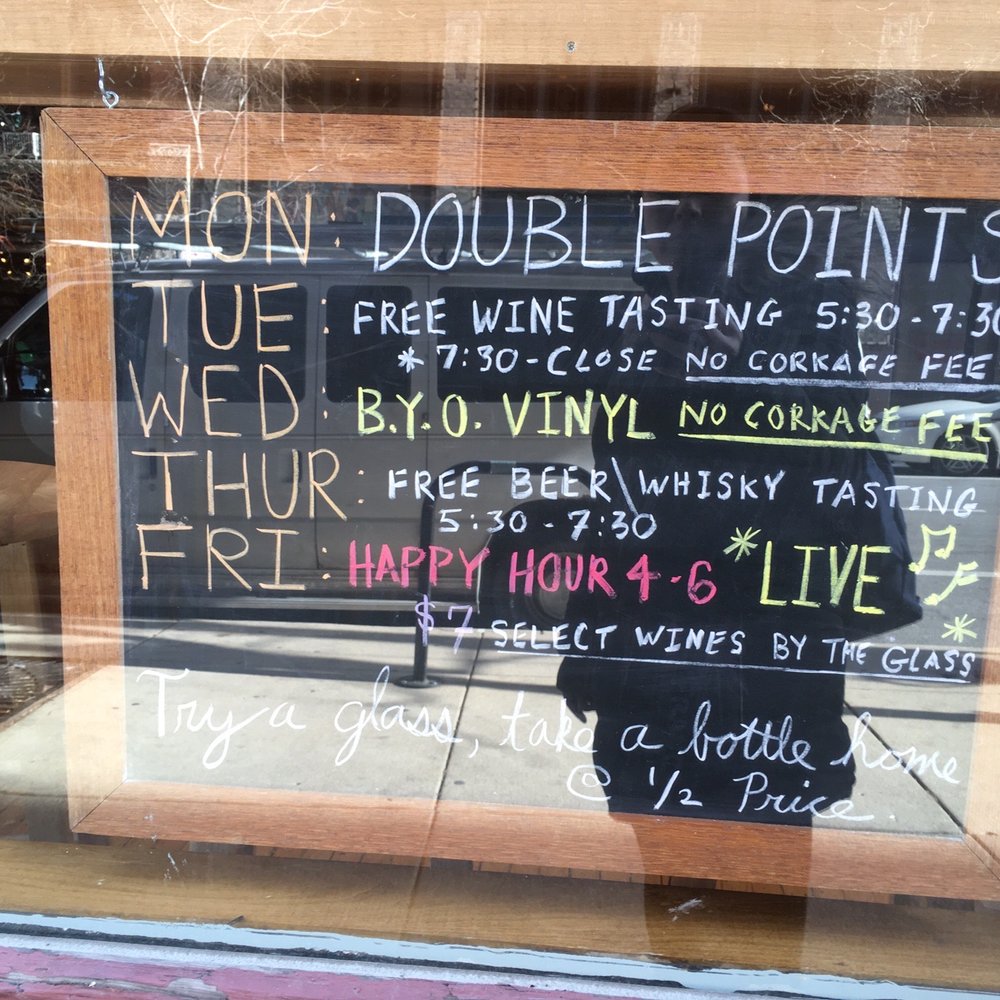 MON: DOUBLE POINTS
TUE: FREE WINE TASTING 5:30-7:30
* 7:30-CLOSE NO CORKAGE FEE
WED: B.Y.O. VINYL NO CORKAGE FEE
THUR: FREE BEER\WHISKY TASTING
5:30-7:30
FRI: HAPPY HOUR 4-6 *LIVE ♫ *
$7 SELECT WINES BY THE GLASS
Try a glass, take a bottle home
@ 1/2 Price.